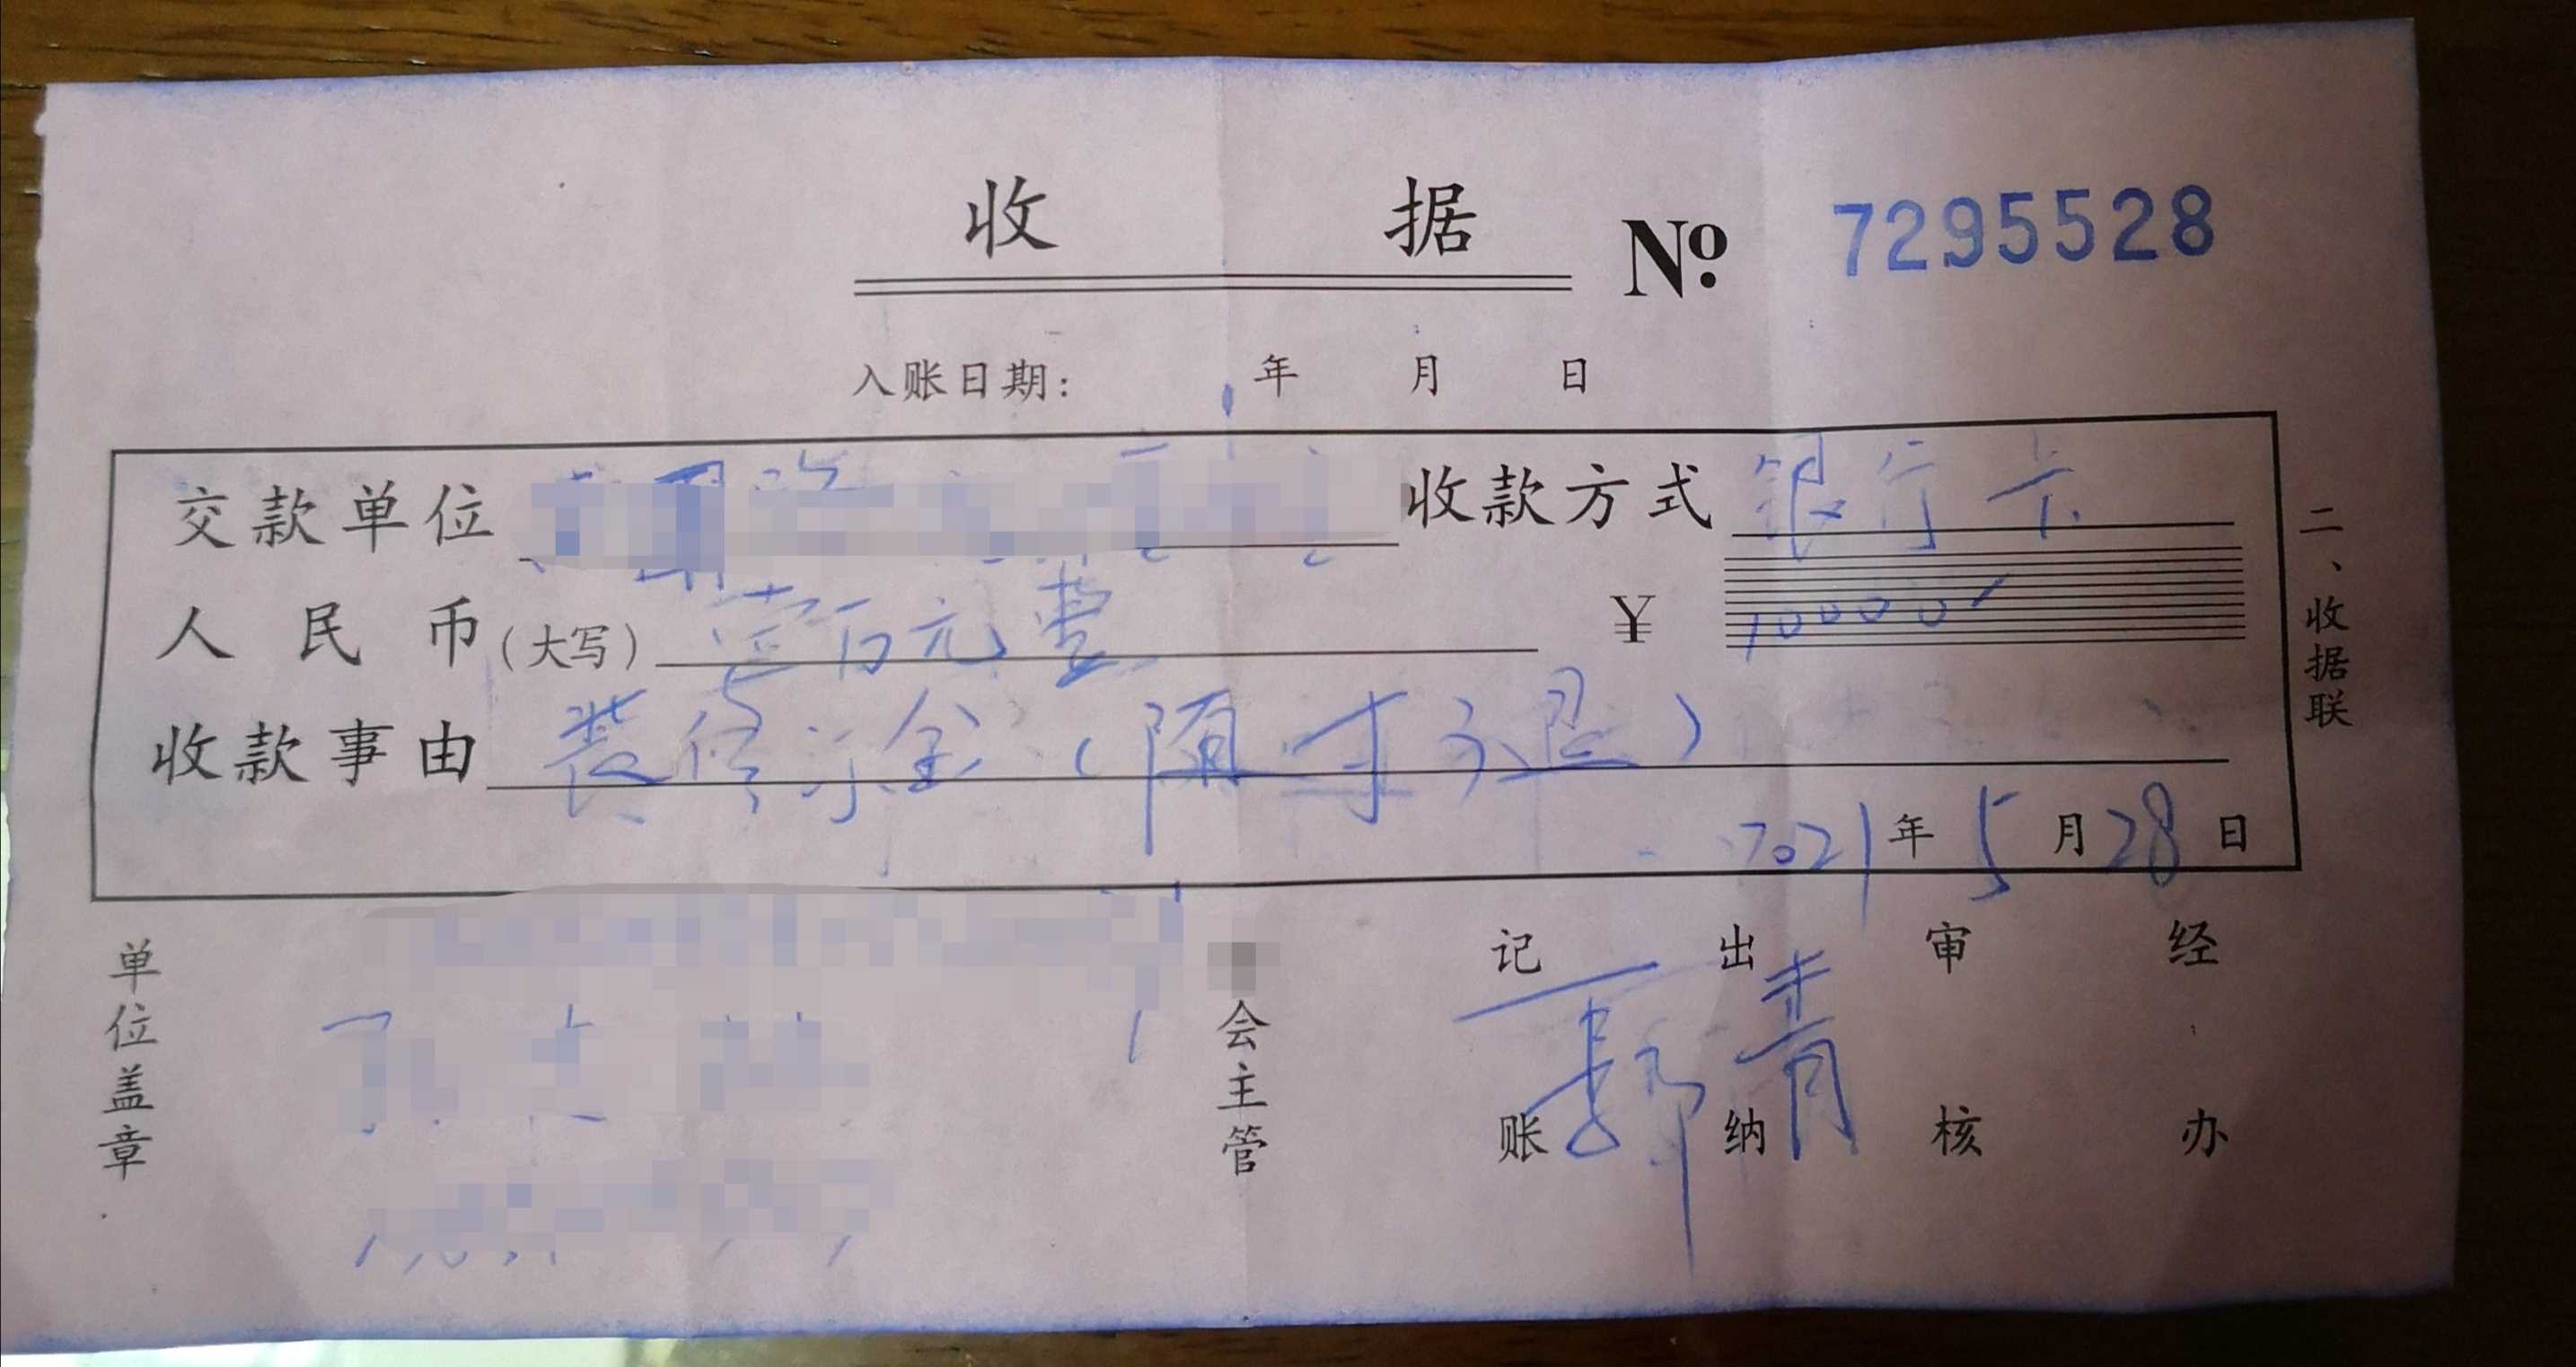 收 据 Nº 7295528
入账日期: 年 月 日
交款单位 收款方式 银行卡
人民币(大写) 壹百元整 ¥ 10000
收款事由 装修订金(随时可退)
2021年5月28日
二、收据联
单位盖章 会主管 记账 出纳 审核 经办
郭青